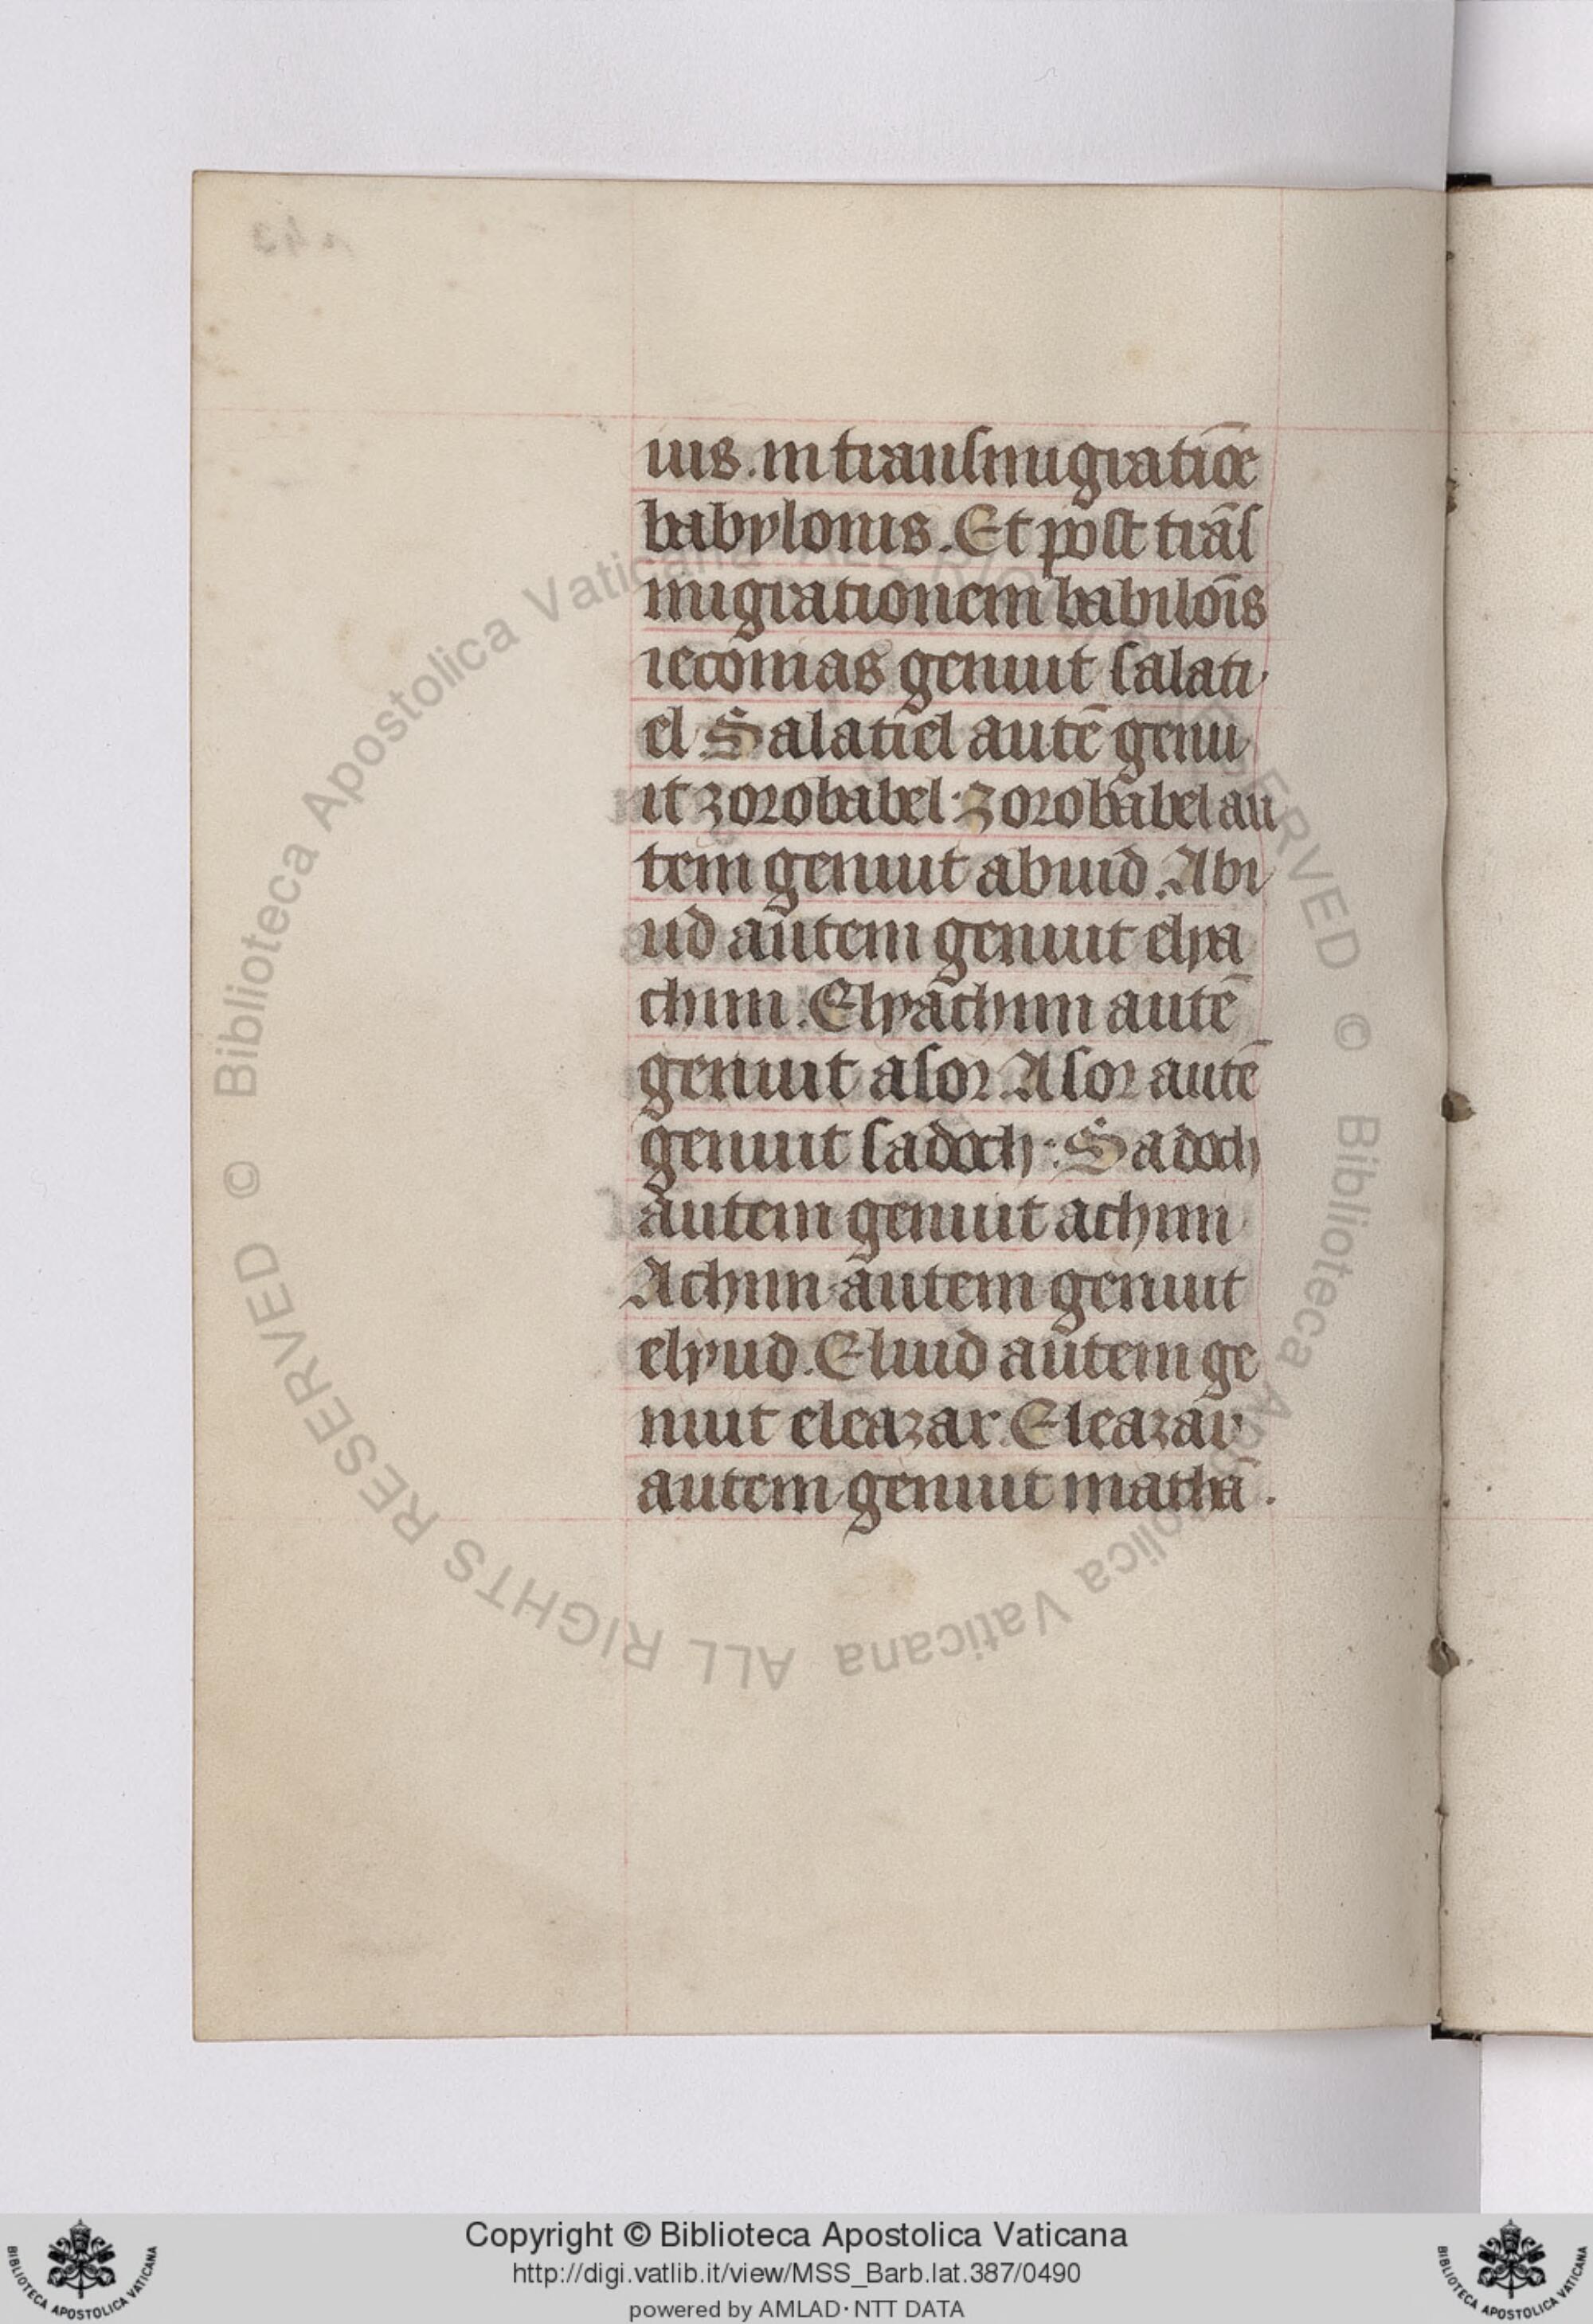 uis. in transmigratiōe
babylonis. Et post trās
migrationem babilōis
ieconias genuit salati
el Salatiel autē genu
it zorobabel. Zorobabel au
tem genuit abiud. Abi
ud autem genuit elya
chim. Elyachim autē
genuit asor. Asor autē
genuit sadoch. Sadoch
autem genuit achim
Achim autem genuit
elyud. Eliud autem ge
nuit eleazar. Eleazar
autem genuit matha .
© Biblioteca Apostolica Vaticana ALL RIGHTS RESERVED © Biblioteca Apostolica Vaticana ALL RIGHTS RESERVED
Copyright © Biblioteca Apostolica Vaticana
http://digi.vatlib.it/view/MSS_Barb.lat.387/0490
powered by AMLAD·NTT DATA
BIBLIOTECA APOSTOLICA VATICANA
BIBLIOTECA APOSTOLICA VATICANA